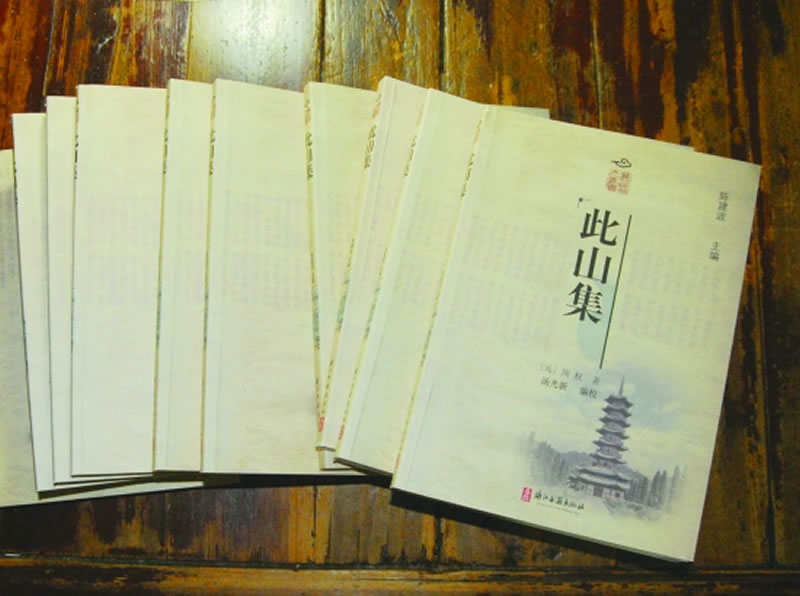 此山集
此山集
陈建波 主编
〔元〕周 权 著
汤光新 编校
浙江古籍出版社